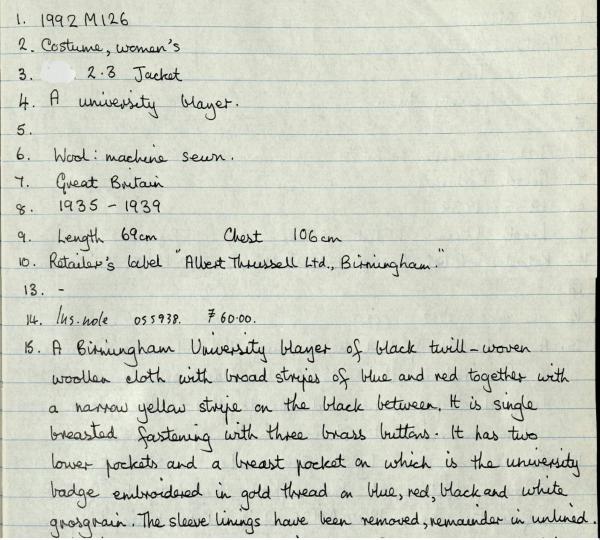 1. 1992 M126
2. Costume, women's
3. 2.3 Jacket
4. A university blazer.
5.
6. Wool: machine sewn.
7. Great Britain
8. 1935 - 1939
9. Length 69cm Chest 106cm
10. Retailer's label "Albert Thrussell Ltd., Birmingham."
13. -
14. Ins. note 055938. 60.00.
15. A Birmingham University blazer of black twill-woven
woollen cloth with broad stripes of blue and red together with
a narrow yellow stripe on the black between. It is single
breasted fastening with three brass buttons. It has two
lower pockets and a breast pocket on which is the university
badge embroidered in gold thread on blue, red, black and white
grosgrain. The sleeve linings have been removed, remainder in unlined.